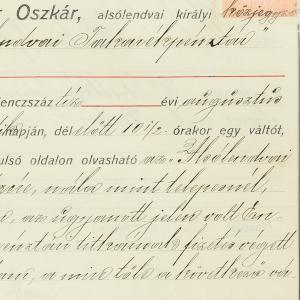 r Oszkár, alsólendvai királyi közjegyző
ndvai Takarékpénztár"
lenczszáz tíz évi augusztus
napján, dél előtt 10 1/2 órakor egy váltót,
ulsó oldalon olvasható az "Alsólendvai
nála mint telepesnél,
az ugyanott jelen volt En-
pénztári titkárnak fizetés végett
tam, a mire tőle a következő vá